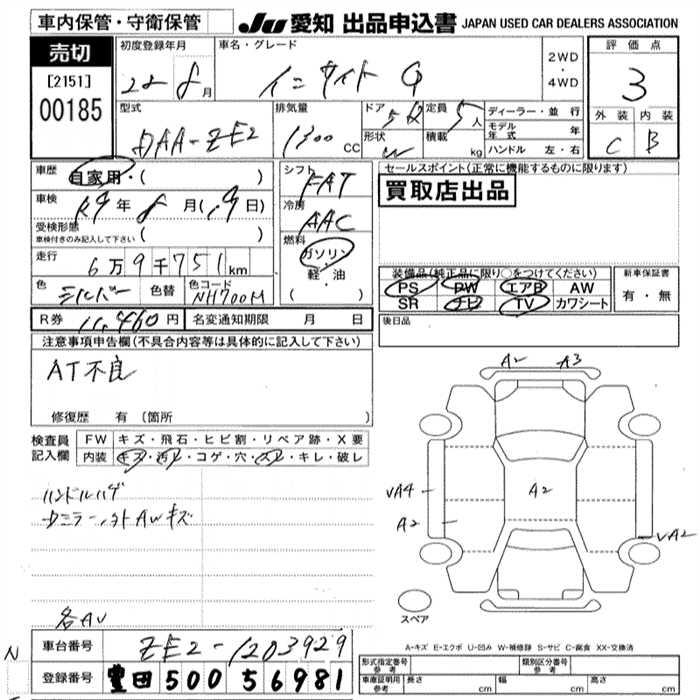 車内保管・守衛保管
JU 愛知 出品申込書 JAPAN USED CAR DEALERS ASSOCIATION
売切
[2151]
00185
初度登録年月 22 8月
車名・グレード インサイト G
2WD・4WD
評価点 3
外装 C 内装 B
型式 DAA-ZE2
排気量 1300 CC
ドア 5
形状 W
定員 5人
積載 kg
ディーラー・並行
モデル年式 年
ハンドル 左・右
車歴 自家用・( )
車検 R9年8月(,9日)
受検形態
車検付きのみ記入して下さい ( )
走行 6万9千751km
色 シルバー 色替 色コード NH700M
シフト FAT
冷房 AAC
燃料 ガソリン・軽・油
( )
セールスポイント(正常に機能するものに限ります)
買取店出品
装備品(純正品に限り○をつけてください)
PS PW エアB AW
SR ナビ TV カワシート
新車保証書
有・無
R券 11,460円 名変通知期限 月 日
後日品
注意事項申告欄(不具合内容等は具体的に記入して下さい)
AT不良
修復歴 有 (箇所
検査員記入欄
FW キズ・飛石・ヒビ割・リペア跡・X要
内装 キズ・汚れ・コゲ・穴・スレ・キレ・破レ
ハンドルハゲ
各AU
A2 A3
A2
UA4
A2
UA2
スペア
A-キズ E-エクボ U-凹み W-補修跡 S-サビ C-腐食 XX-交換済
N
車台番号 ZE2-1203929
登録番号 豊田 500 56981
形式指定番号 参考
類別区分番号 参考
車庫証明用 参考 長さ cm 幅 cm 高さ cm